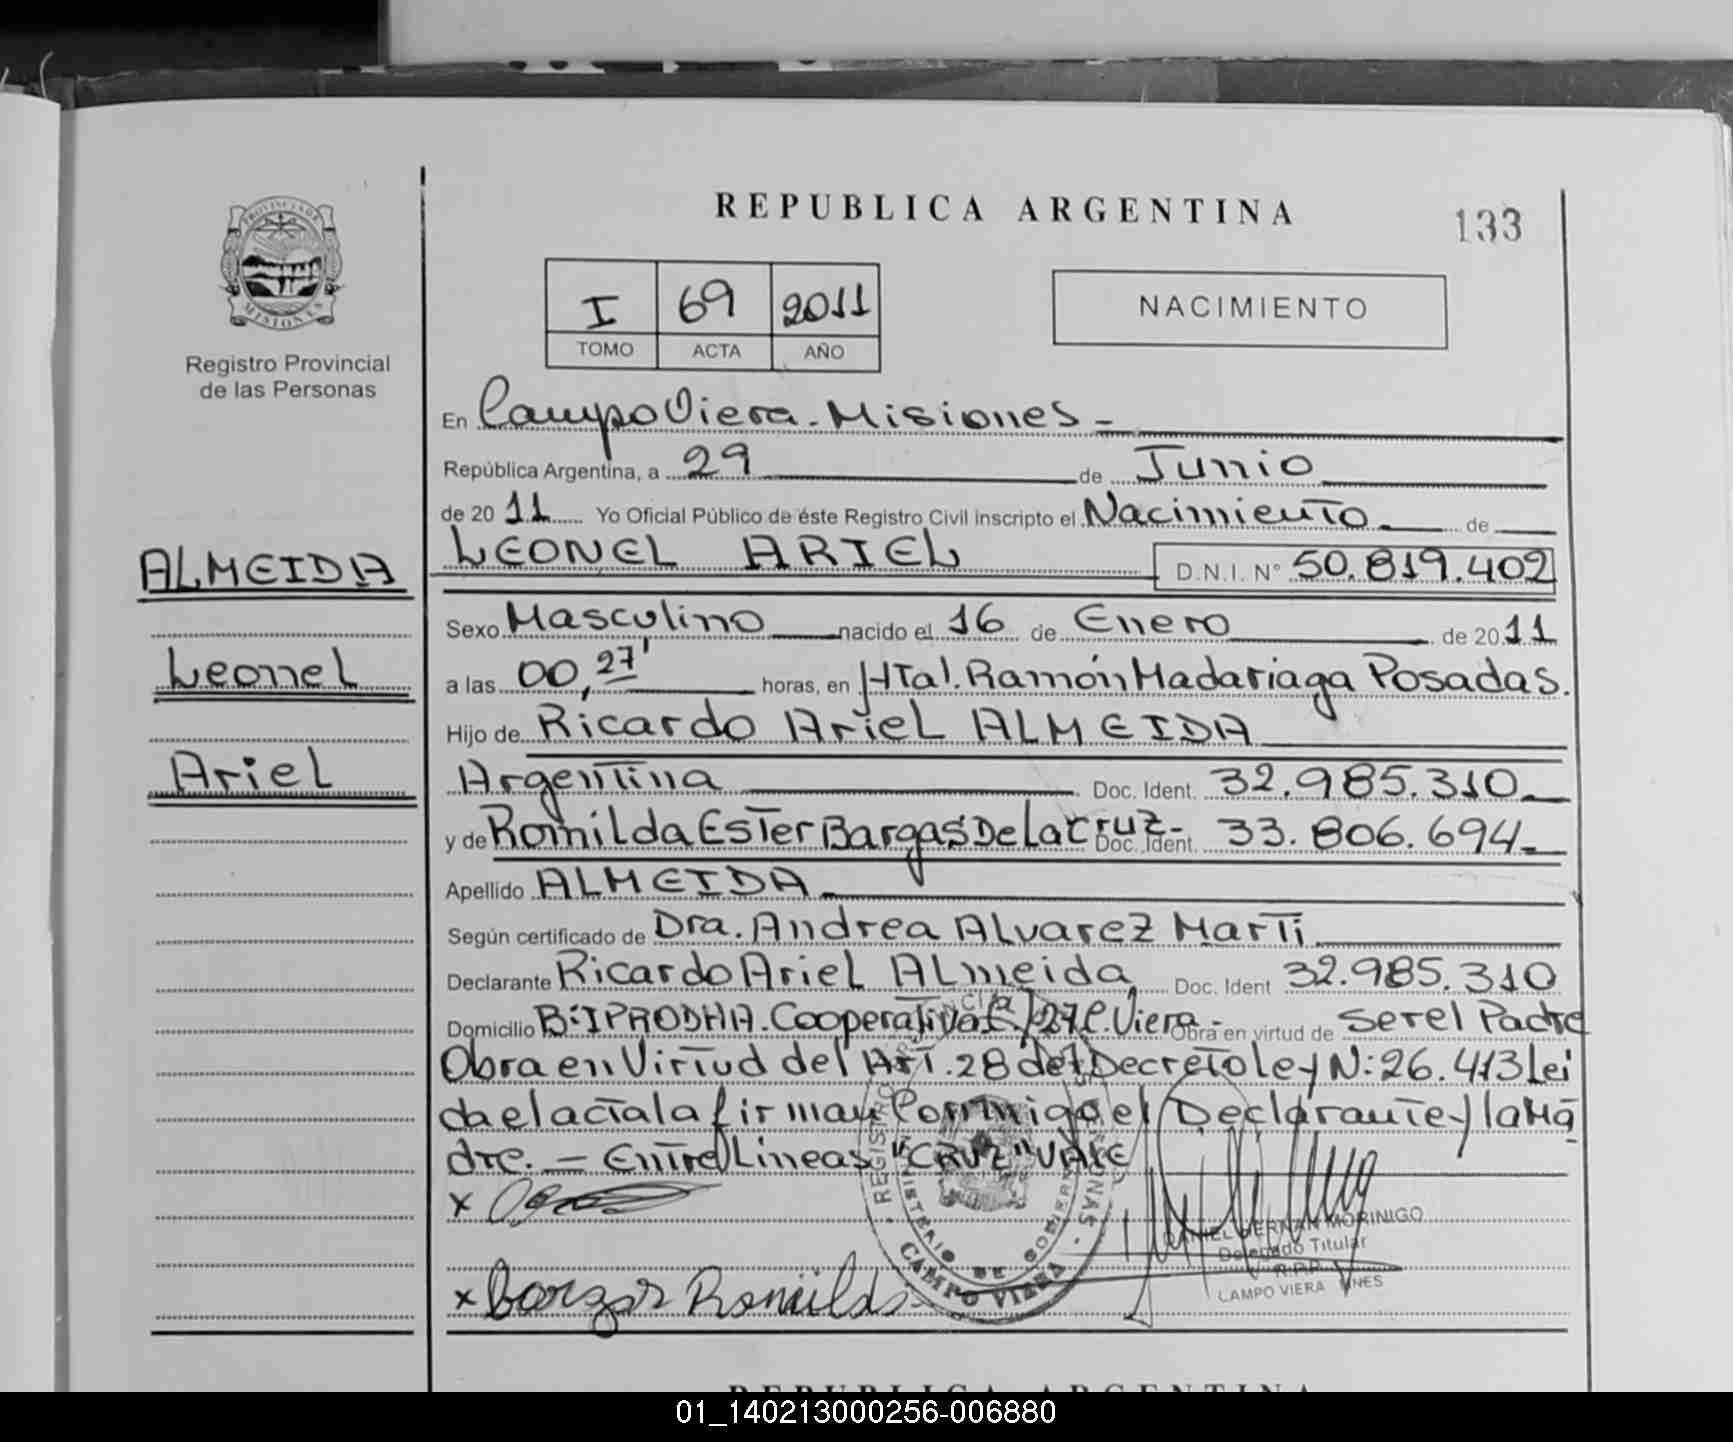 REPUBLICA ARGENTINA
133
PROVINCIA DE
MISIONES
Registro Provincial
de las Personas
I 69 2011
TOMO ACTA AÑO
NACIMIENTO
En Campo Viera - Misiones -
República Argentina, a 29 de Junio
de 20 11 Yo Oficial Público de éste Registro Civil inscripto el Nacimiento de
LEONEL ARIEL D.N.I. N° 50.819.402
ALMEIDA
Leonel
Ariel
Sexo Masculino nacido el 16 de Enero de 20 11
a las 00,27' horas, en Htal. Ramón Madariaga Posadas.
Hijo de Ricardo Ariel ALMEIDA
Argentina Doc. Ident. 32.985.310
y de Romilda Ester Bargas De La cruz - Doc. Ident. 33.806.694
Apellido ALMEIDA
Según certificado de Dra. Andrea Alvarez Marti
Declarante Ricardo Ariel Almeida Doc. Ident 32.985.310
Domicilio B: IPRODHA. Cooperativa C. Viera - Obra en virtud de Ser el Padre
Obra en Virtud del Art. 28 del Decreto ley N: 26.413 Lei
da el acta la firman Conmigo el Declarante y la Ma
dre. - Entre Lineas "CRUZ" VALE
x
x Bargas Romilda
REGISTRO PROVINCIAL PERSONAS
MINISTERIO DE GOBIERNO
CAMPO VIERA
DANIEL HERNAN MORINIGO
Delegado Titular
R.P.P.
CAMPO VIERA MNES
REPUBLICA ARGENTINA
01_140213000256-006880